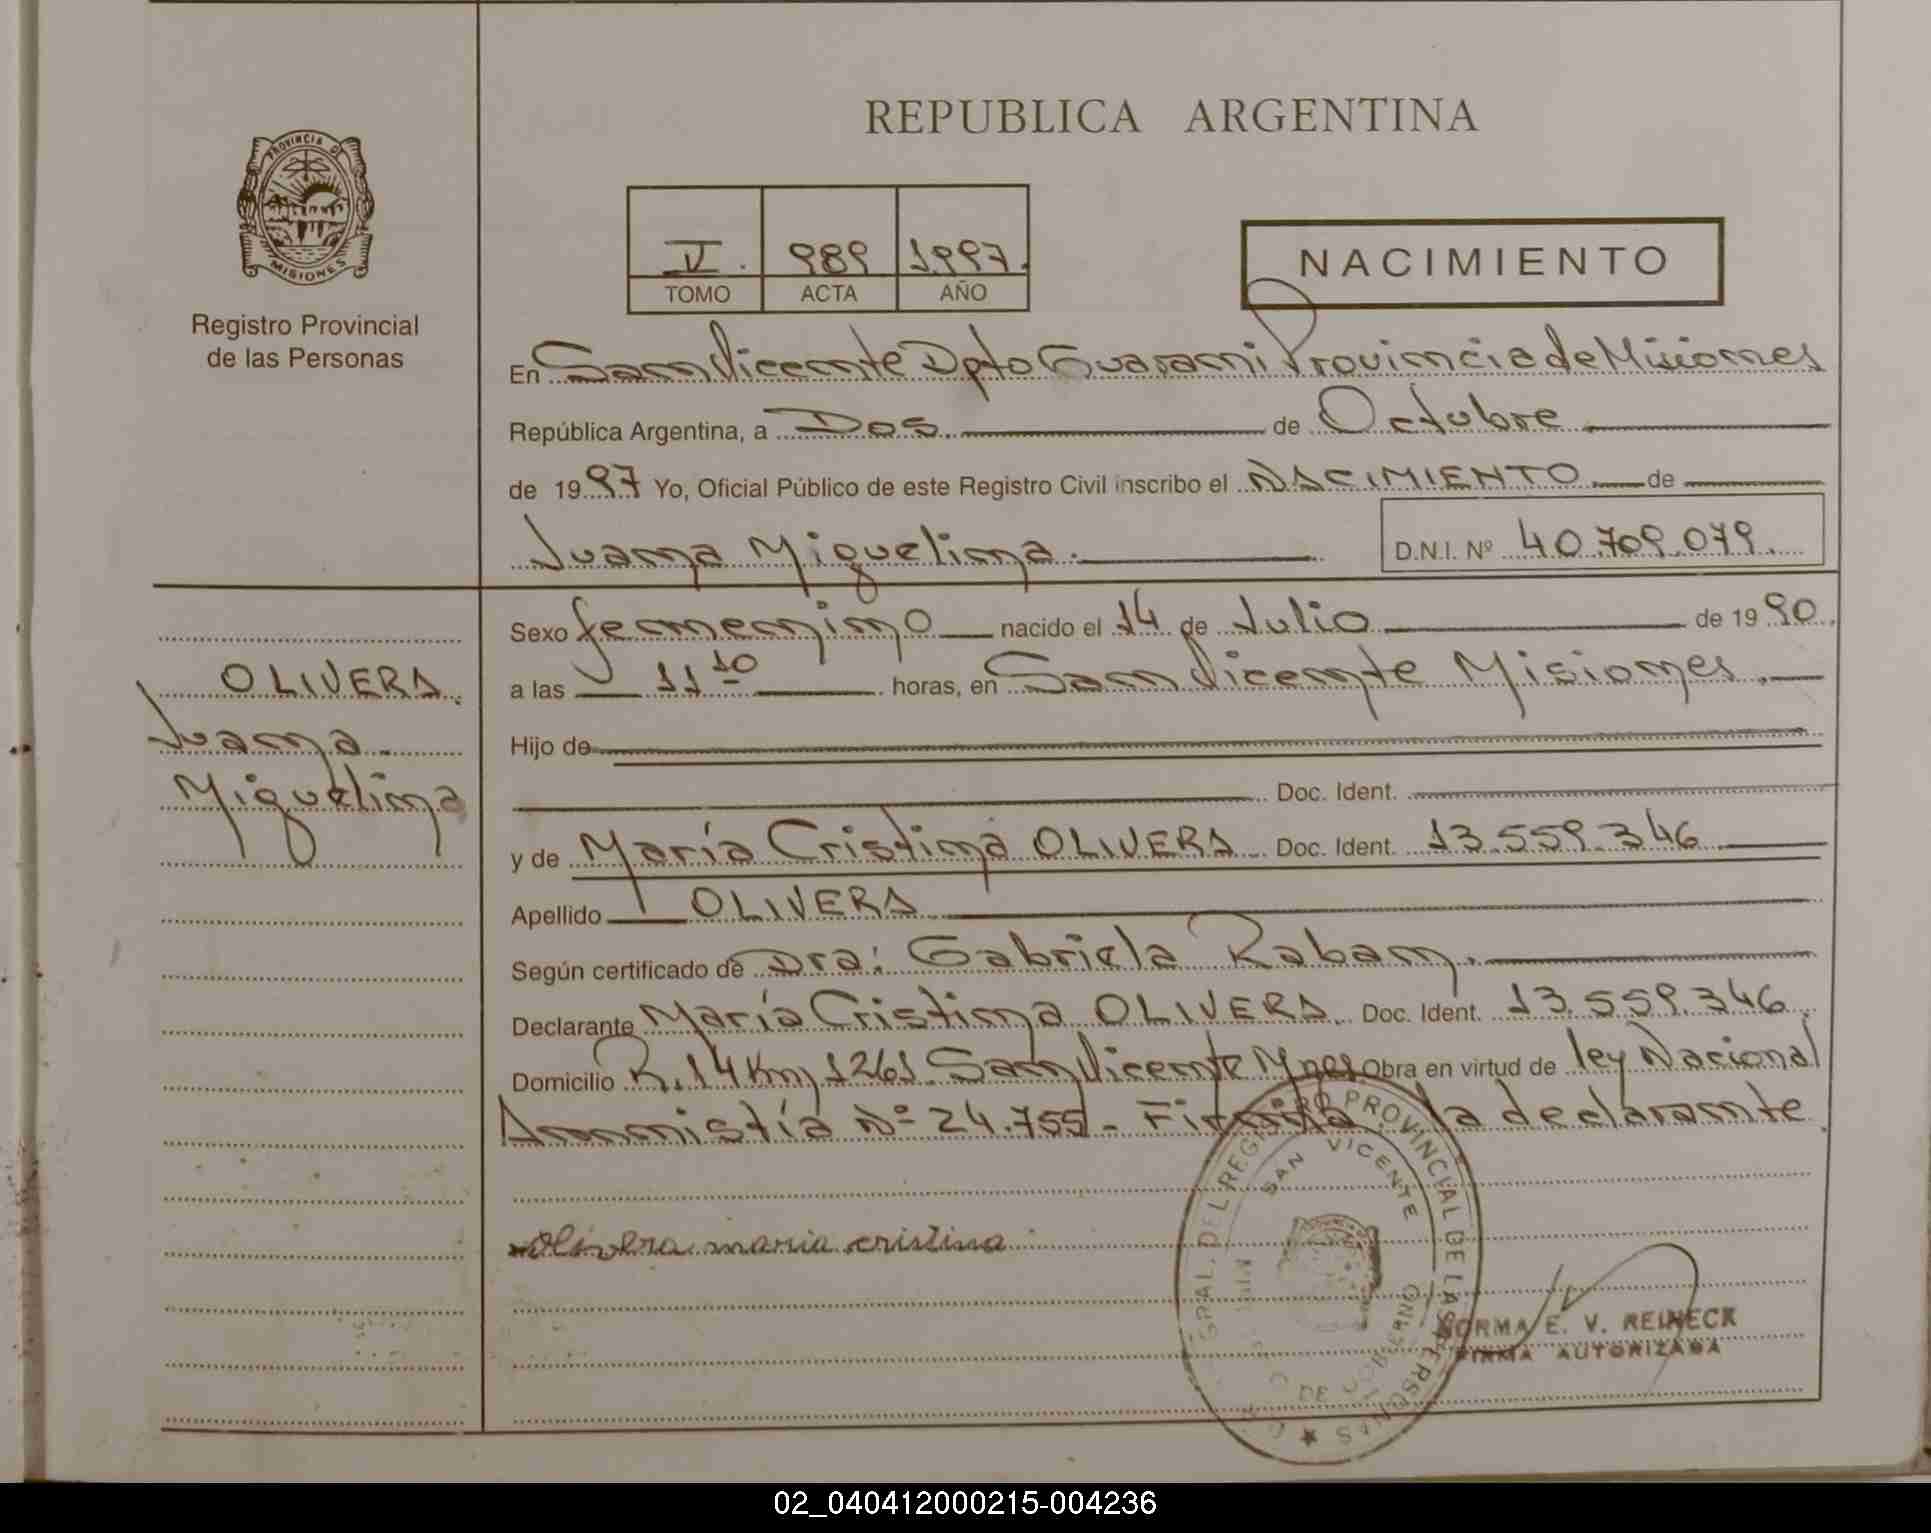 REPUBLICA ARGENTINA
PROVINCIA DE
MISIONES
Registro Provincial
de las Personas
V. 989 1997.
TOMO ACTA AÑO
NACIMIENTO
En San Vicente Dpto Guarani Provincia de Misiones
República Argentina, a Dos. de Octubre
de 1997 Yo, Oficial Público de este Registro Civil inscribo el NACIMIENTO de
Juana Miguelina. D.N.I. Nº 40.709.079.
Sexo femenino nacido el 14 de Julio de 1990.
a las 11 10 horas, en San Vicente Misiones.
Hijo de
Doc. Ident.
y de María Cristina OLIVERA Doc. Ident. 13.559.346
Apellido OLIVERA
Según certificado de Dra: Gabriela Raban.
Declarante María Cristina OLIVERA. Doc. Ident. 13.559.346.
Domicilio R.14 Km 1261. San Vicente Mnes Obra en virtud de ley Nacional
Amnistía Nº 24.755 - Firma la declarante.
OLIVERA.
Juana
Miguelina
Olivera maria cristina
GRAL. DEL REGISTRO PROVINCIAL DE LAS PERSONAS
SAN VICENTE
DE GOBIERNO
NORMA E. V. REINECK
FIRMA AUTORIZADA
02_040412000215-004236